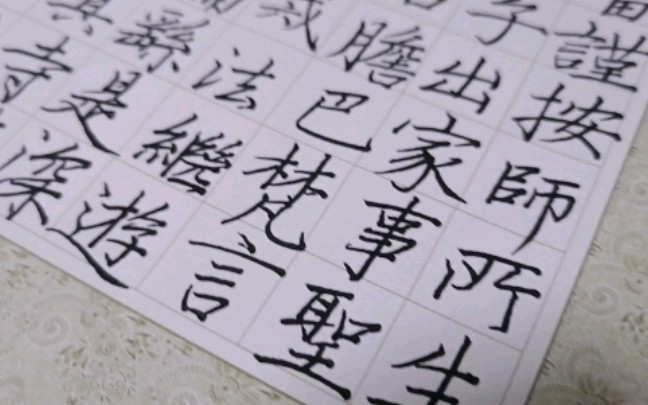 謹按師所生
子出家事聖
膽巴梵言
戒法繼遊
繇是深
其寺